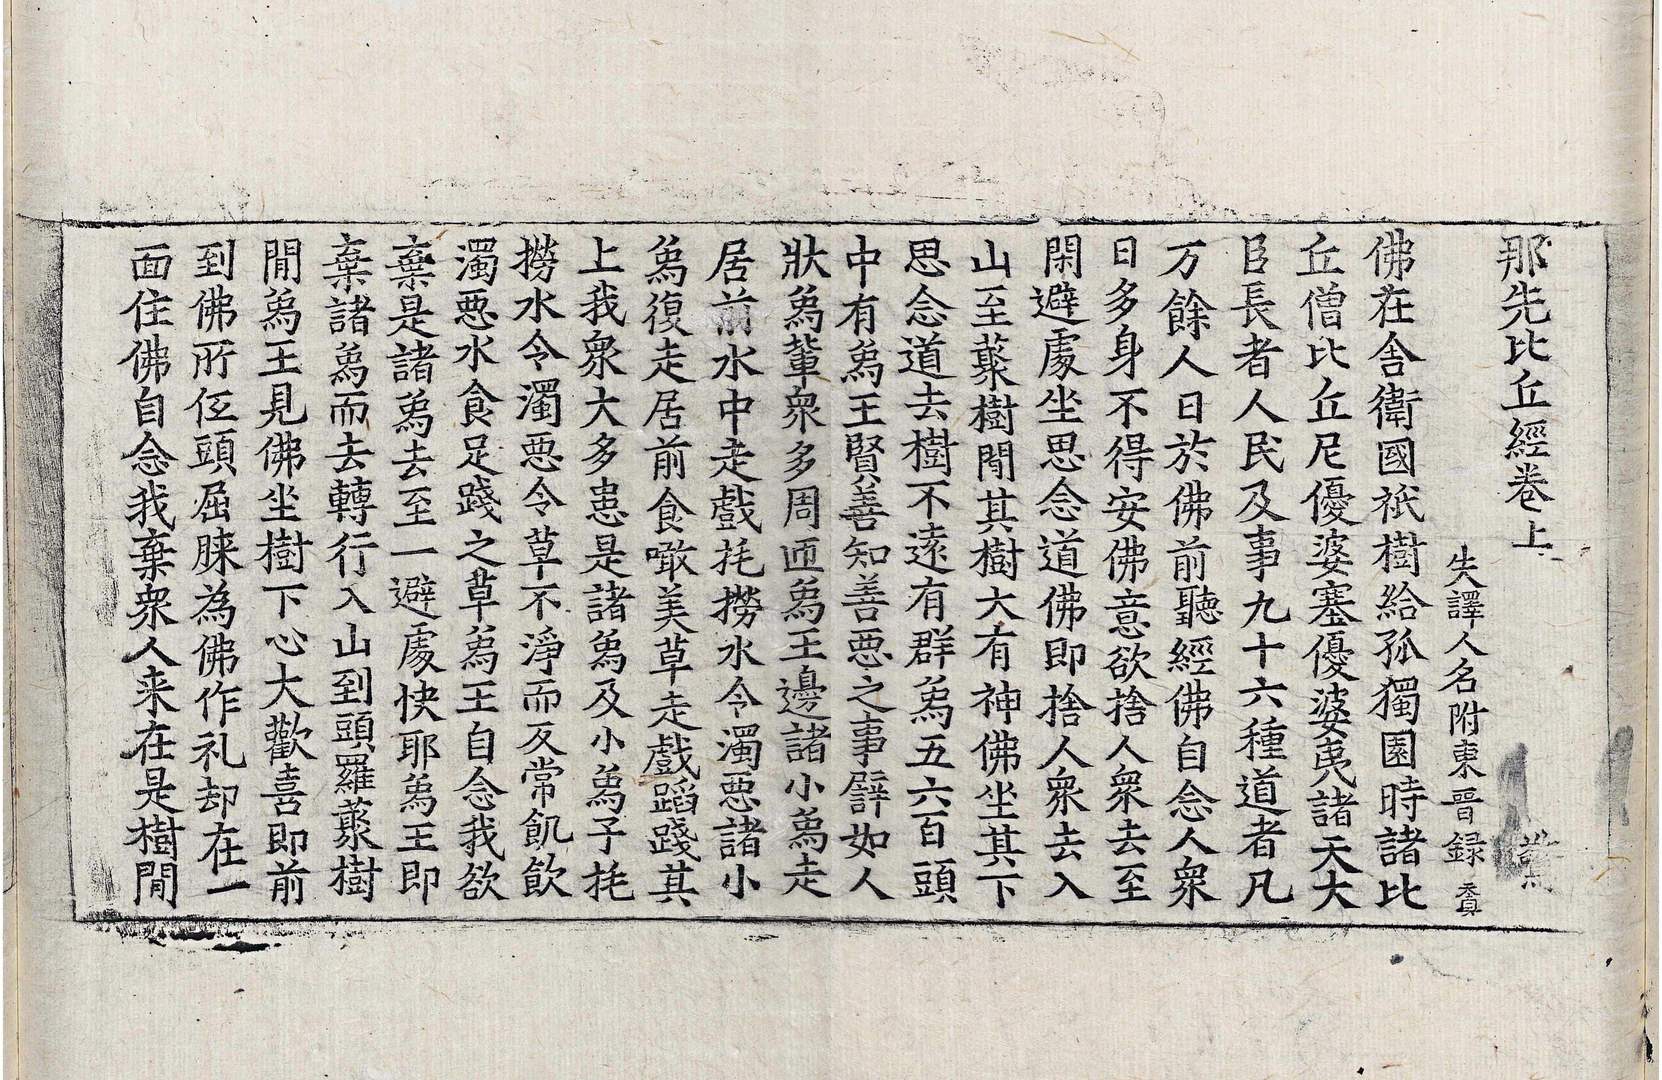 那先比丘經卷上
失譯人名附東晉録
佛在舍衛國祇樹給孤獨園時諸比
丘僧比丘尼優婆塞優婆夷諸天大
臣長者人民及事九十六種道者凡
万餘人日於佛前聽經佛自念人衆
日多身不得安佛意欲捨人衆去至
閑避處坐思念道佛即捨人衆去入
山至藂樹閒其樹大有神佛坐其下
思念道去樹不遠有群象五六百頭
中有象王賢善知善惡之事譬如人
狀象輩衆多周迊象王邊諸小象走
居前水中走戲撓撈水令濁惡諸小
象復走居前食噉美草走戲蹈踐其
上我衆大多患是諸象及小象子撓
撈水令濁惡令草不淨而反常飢飲
濁惡水食足踐之草象王自念我欲
棄是諸象去至一避處快耶象王即
棄諸象而去轉行入山到頭羅藂樹
閒象王見佛坐樹下心大歡喜即前
到佛所仾頭屈膝為佛作礼却在一
面住佛自念我棄衆人来在是樹閒